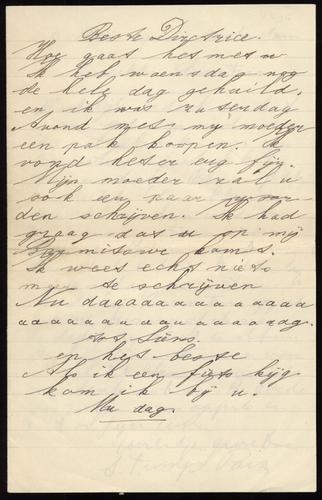 Beste Directrice.
Hoe gaat het met u
Ik heb woensdag nog
de hele dag gehuild.
en ik was zaterdag
Avond met mij moeder
een pak koopen. Ik
vond het er erg fijn.
Mijn moeder zal u
ook een paar
den schrijven. Ik had
graag dat u op mij
Barmitswe komt.
Ik weet echt niets
meer te schrijven
Nu daaaaaaaaaaaaaa
aaaaaaaaaaaaaaaag.
tot Siens.
en het beste
Als ik een fiets krijg
kom ik bij u.
Nu dag.